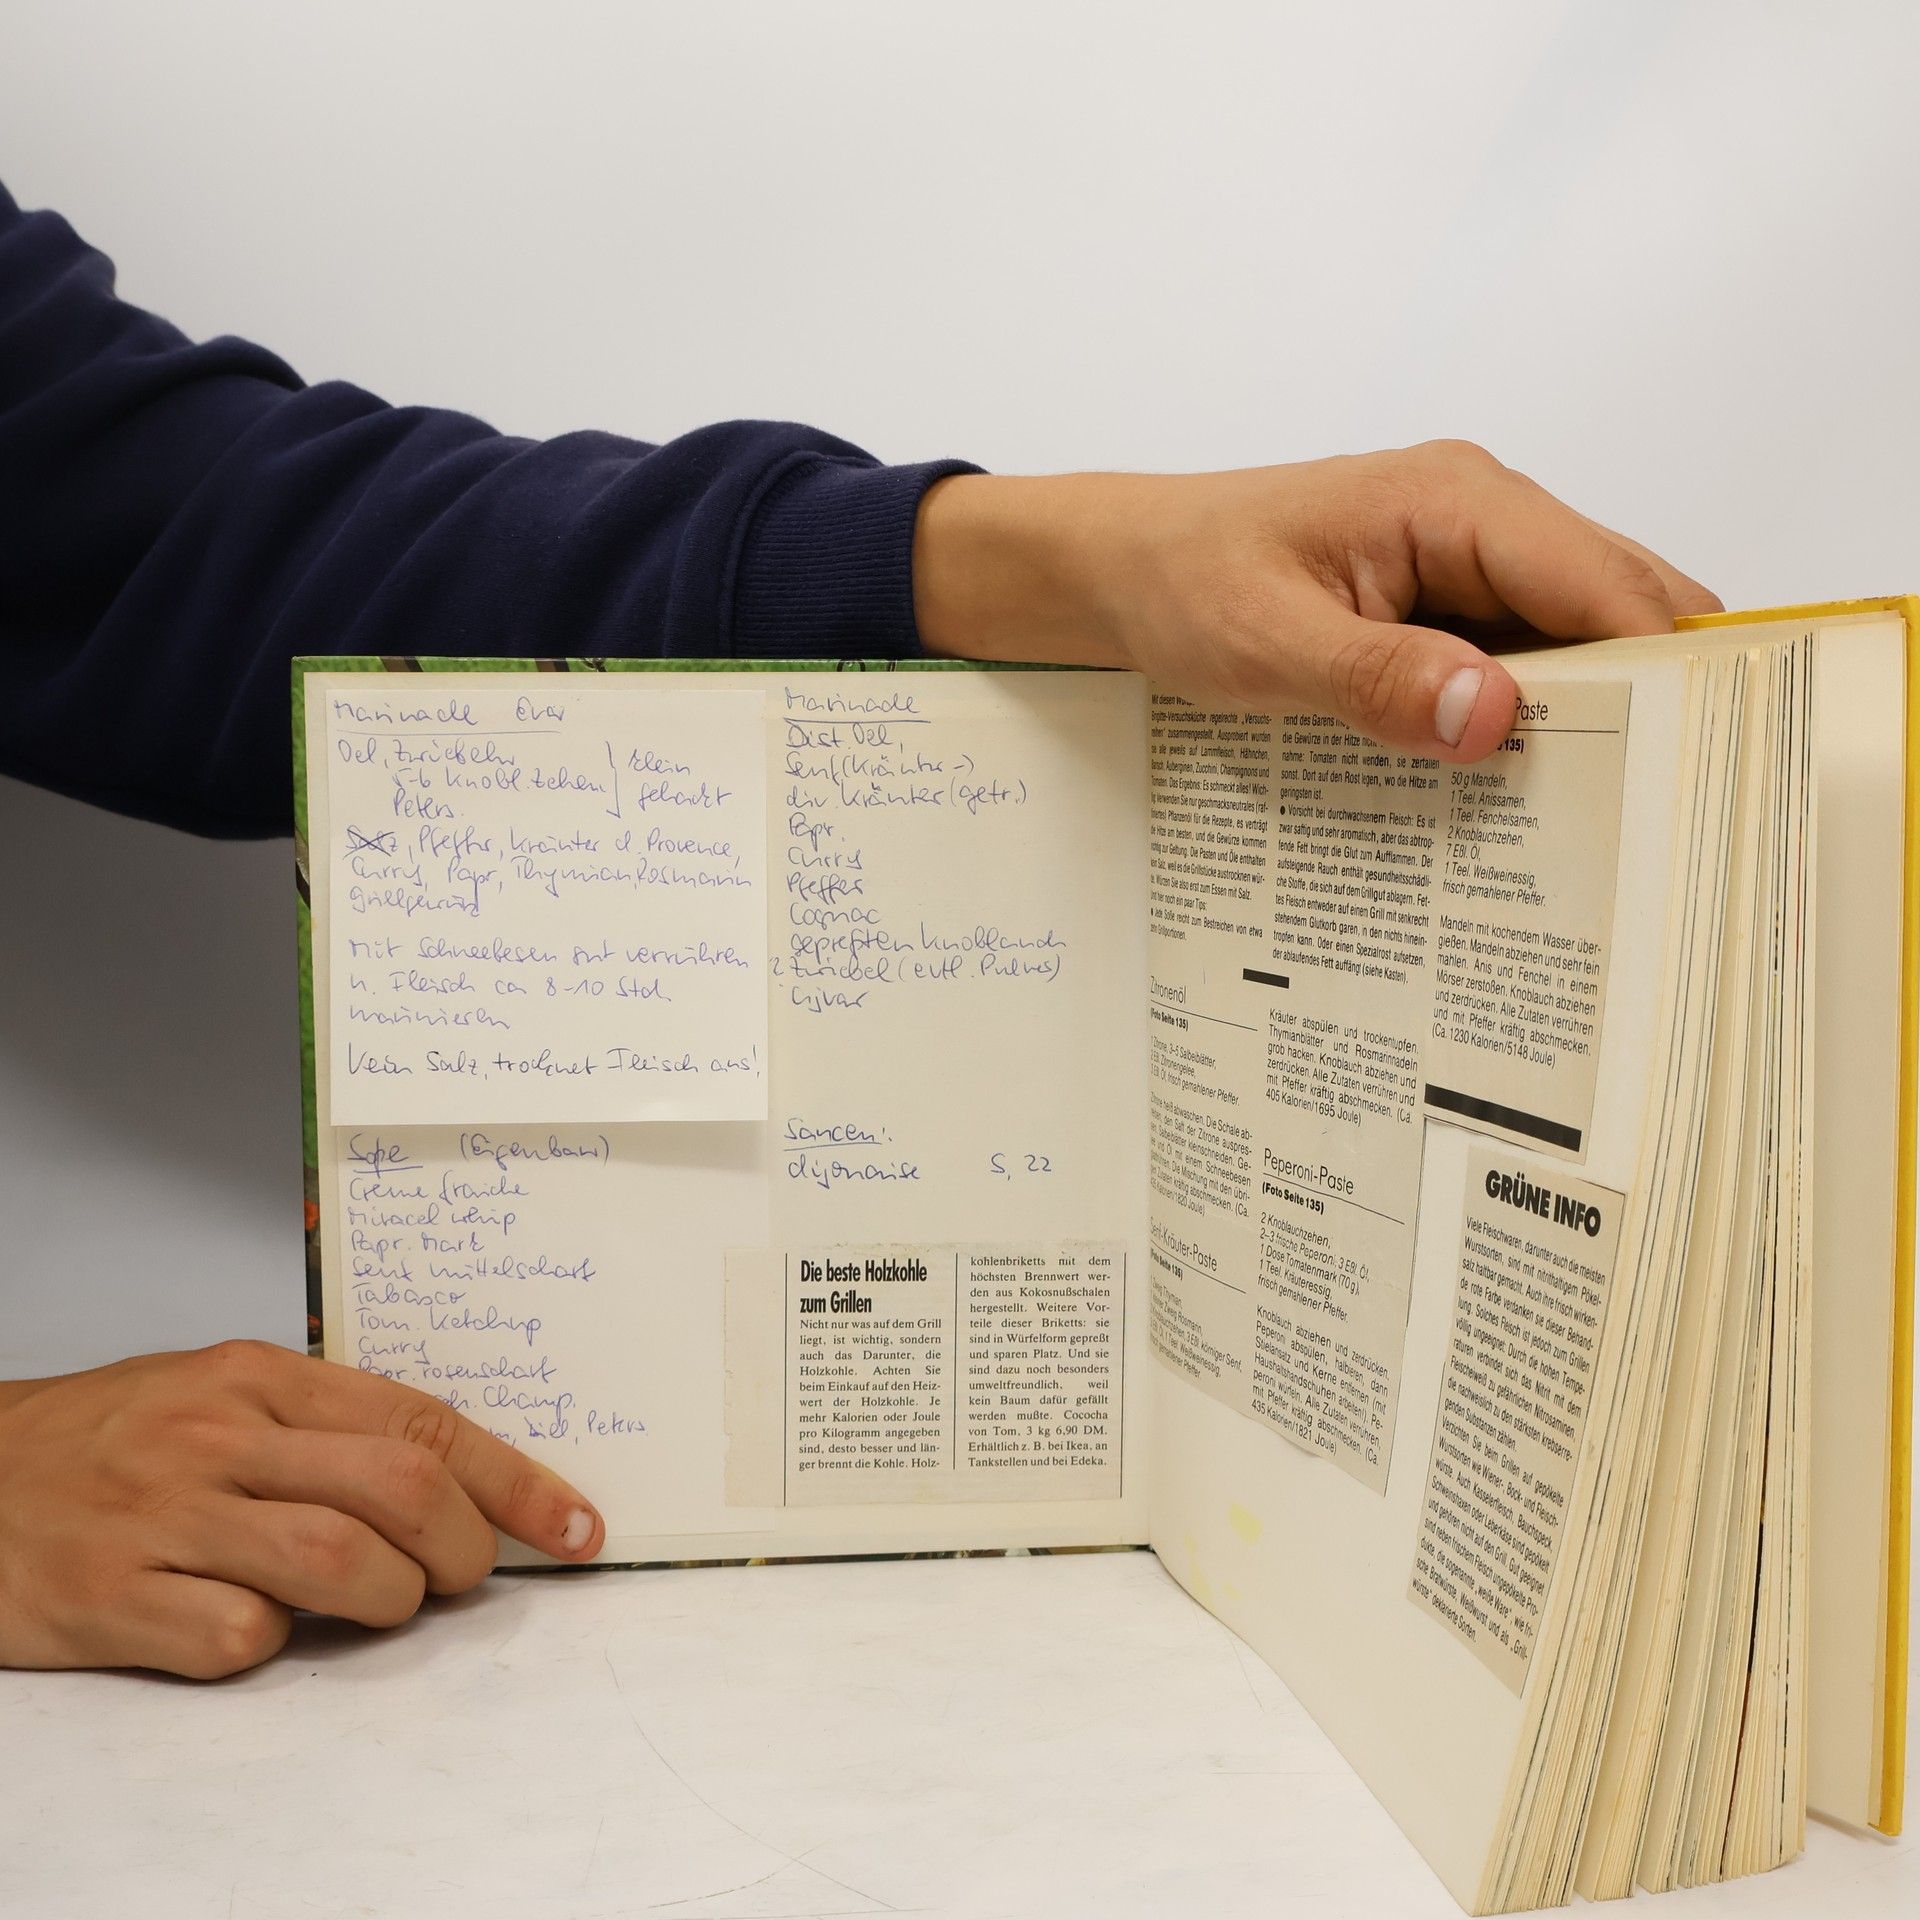 Marinade
Oel, Zwiebeln
5-6 Knobl. Zehen
Peters.
klein
gehackt
Salz, Pfeffer, Kräuter d. Provence,
Curry, Papr, Thymian, Rosmarin
Grillgewürz
Mit Schneebesen gut verrühren
u. Fleisch ca 8-10 Std.
marinieren
Kein Salz, trocknet Fleisch aus!
Soße (Eigenbau)
Creme fraiche
Miracel whip
Papr. Mark
Senf mittelscharf
Tabasco
Tom. Ketchup
Curry
Papr. rosenscharf
Champ.
Dill, Peters.
Marinade
Dist. Oel,
Senf (Kräuter-)
div. Kräuter (getr.)
Papr.
Curry
Pfeffer
Cognac
gepreßten Knoblauch
? Zwiebel (evtl. Pulver)
Ajvar
Saucen:
dijonaise S. 22
Die beste Holzkohle
zum Grillen
Nicht nur was auf dem Grill
liegt, ist wichtig, sondern
auch das Darunter, die
Holzkohle. Achten Sie
beim Einkauf auf den Heiz-
wert der Holzkohle. Je
mehr Kalorien oder Joule
pro Kilogramm angegeben
sind, desto besser und län-
ger brennt die Kohle. Holz-
kohlenbriketts mit dem
höchsten Brennwert wer-
den aus Kokosnußschalen
hergestellt. Weitere Vor-
teile dieser Briketts: sie
sind in Würfelform gepreßt
und sparen Platz. Und sie
sind dazu noch besonders
umweltfreundlich, weil
kein Baum dafür gefällt
werden mußte. Cococha
von Tom, 3 kg 6,90 DM.
Erhältlich z. B. bei Ikea, an
Tankstellen und bei Edeka.
Mit diesen
Brigitte-Versuchsküche regelrechte „Versuchs-
reihen" zusammengestellt. Ausprobiert wurden
sie alle jeweils auf Lammfleisch, Hähnchen,
Barsch, Auberginen, Zucchini, Champignons und
Tomaten. Das Ergebnis: Es schmeckt alles! Wich-
tig: Verwenden Sie nur geschmacksneutrales (raf-
finiertes) Pflanzenöl für die Rezepte, es verträgt
die Hitze am besten, und die Gewürze kommen
richtig zur Geltung. Die Pasten und Öle enthalten
kein Salz, weil es die Grillstücke austrocknen wür-
de. Würzen Sie also erst zum Essen mit Salz.
Und hier noch ein paar Tips:
● Jede Soße reicht zum Bestreichen von etwa
zehn Grillportionen.
Zitronenöl
(Foto Seite 135)
1 Zitrone, 3–5 Salbeiblätter,
2 Eßl. Zitronengelee,
3 Eßl. Öl, frisch gemahlener Pfeffer.
Zitrone heiß abwaschen. Die Schale ab-
reiben, den Saft der Zitrone auspres-
sen. Salbeiblätter kleinschneiden. Ge-
lee und Öl mit einem Schneebesen
glattrühren. Die Mischung mit den übri-
gen Zutaten kräftig abschmecken. (Ca.
435 Kalorien/1820 Joule)
Senf-Kräuter-Paste
(Foto Seite 135)
Thymian,
Zweig Rosmarin,
3 Eßl. körniger Senf,
1 Teel. Weißweinessig,
gemahlener Pfeffer
rend des Garens
die Gewürze in der Hitze nicht
nahme: Tomaten nicht wenden, sie zerfallen
sonst. Dort auf den Rost legen, wo die Hitze am
geringsten ist.
● Vorsicht bei durchwachsenem Fleisch: Es ist
zwar saftig und sehr aromatisch, aber das abtrop-
fende Fett bringt die Glut zum Aufflammen. Der
aufsteigende Rauch enthält gesundheitsschädli-
che Stoffe, die sich auf dem Grillgut ablagern. Fet-
tes Fleisch entweder auf einem Grill mit senkrecht
stehendem Glutkorb garen, in den nichts hinein-
tropfen kann. Oder einen Spezialrost aufsetzen,
der ablaufendes Fett auffängt (siehe Kasten).
Kräuter abspülen und trockentupfen.
Thymianblätter und Rosmarinnadeln
grob hacken. Knoblauch abziehen und
zerdrücken. Alle Zutaten verrühren und
mit Pfeffer kräftig abschmecken. (Ca.
405 Kalorien/1695 Joule)
Peperoni-Paste
(Foto Seite 135)
2 Knoblauchzehen,
2–3 frische Peperoni, 3 Eßl. Öl,
1 Dose Tomatenmark (70 g),
1 Teel. Kräuteressig,
frisch gemahlener Pfeffer.
Knoblauch abziehen und zerdrücken.
Peperoni abspülen, halbieren, dann
Stielansatz und Kerne entfernen (mit
Haushaltshandschuhen arbeiten!). Pe-
peroni würfeln. Alle Zutaten verrühren,
mit Pfeffer kräftig abschmecken. (Ca.
435 Kalorien/1821 Joule)
Paste
135)
50 g Mandeln,
1 Teel. Anissamen,
1 Teel. Fenchelsamen,
2 Knoblauchzehen,
7 Eßl. Öl,
1 Teel. Weißweinessig,
frisch gemahlener Pfeffer.
Mandeln mit kochendem Wasser über-
gießen. Mandeln abziehen und sehr fein
mahlen. Anis und Fenchel in einem
Mörser zerstoßen. Knoblauch abziehen
und zerdrücken. Alle Zutaten verrühren
und mit Pfeffer kräftig abschmecken.
(Ca. 1230 Kalorien/5148 Joule)
GRÜNE INFO
Viele Fleischwaren, darunter auch die meisten
Wurstsorten, sind mit nitrithaltigem Pökel-
salz haltbar gemacht. Auch ihre frisch wirken-
de rote Farbe verdanken sie dieser Behand-
lung. Solches Fleisch ist jedoch zum Grillen
völlig ungeeignet: Durch die hohen Tempe-
raturen verbindet sich das Nitrit mit dem
Fleischeiweiß zu gefährlichen Nitrosaminen,
die nachweislich zu den stärksten krebserre-
genden Substanzen zählen.
Verzichten Sie beim Grillen auf gepökelte
Wurstsorten wie Wiener-, Bock- und Fleisch-
würste. Auch Kasselerfleisch, Bauchspeck,
Schweinshaxen oder Leberkäse sind gepökelt
und gehören nicht auf den Grill. Gut geeignet
sind neben frischem Fleisch ungepökelte Pro-
dukte, die sogenannte „weiße Ware", wie fri-
sche Bratwürste, Weißwurst und als „Grill-
würste" deklarierte Sorten.